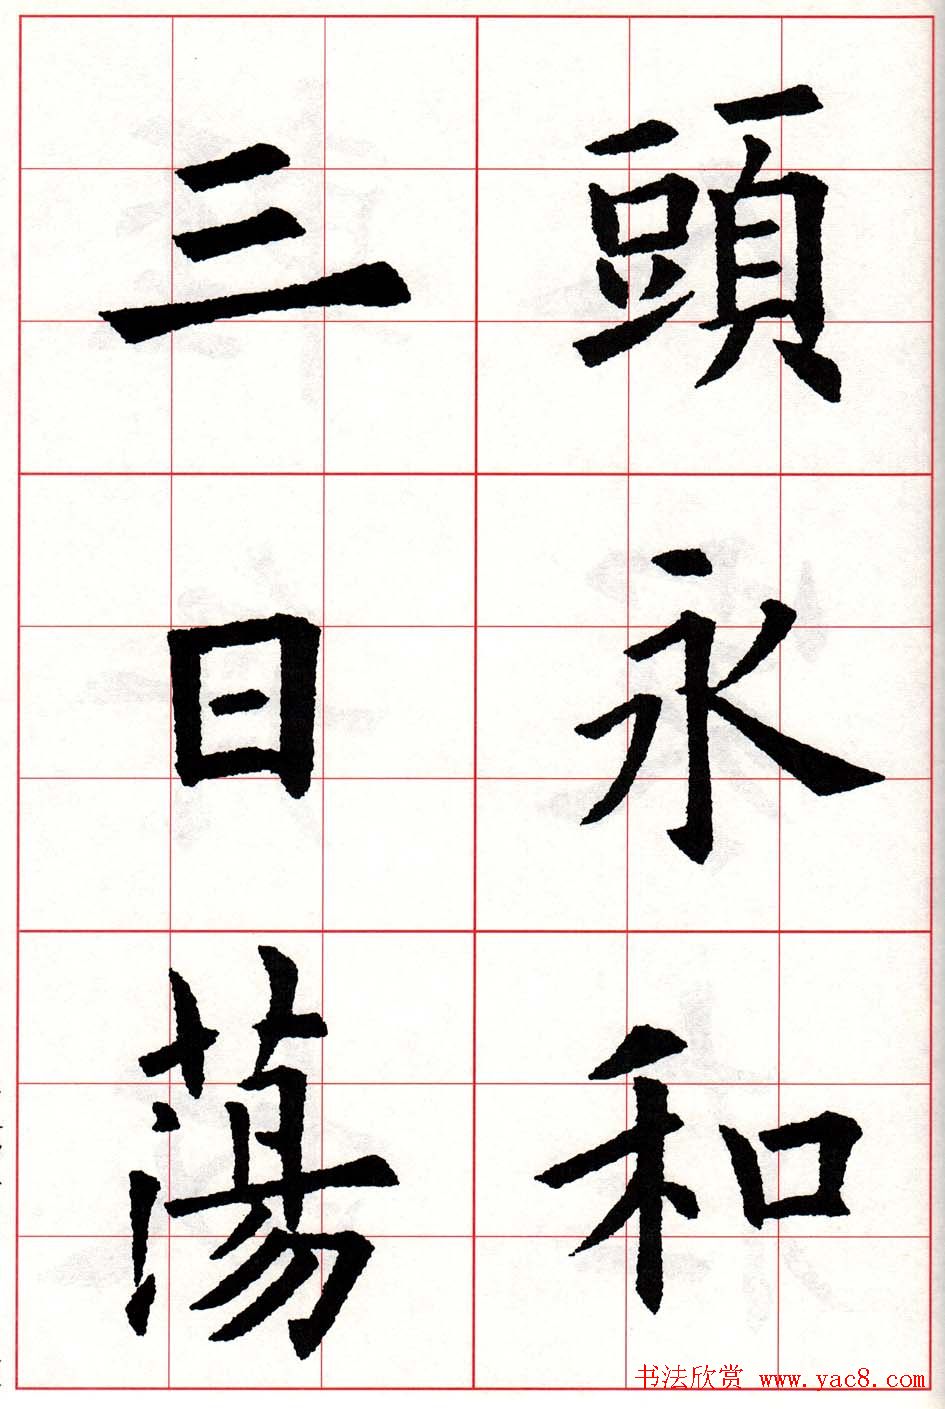 頭永和
三日蕩
书法欣赏 www.yac8.com